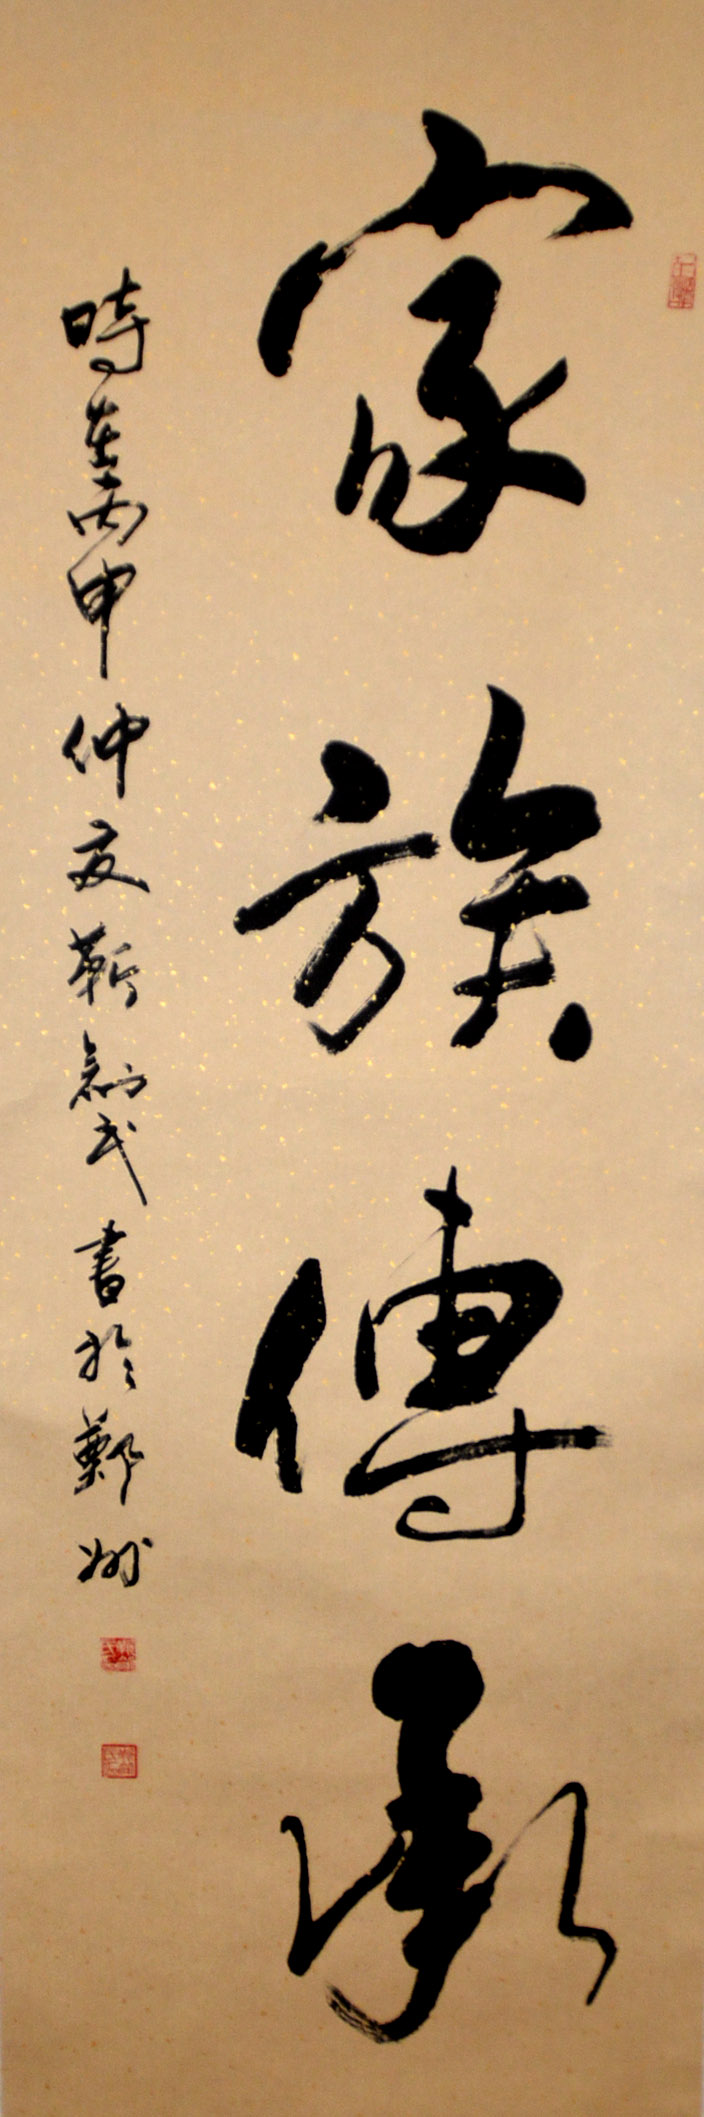 家族傳承
時在丙申仲夏靳劍武書於鄭州